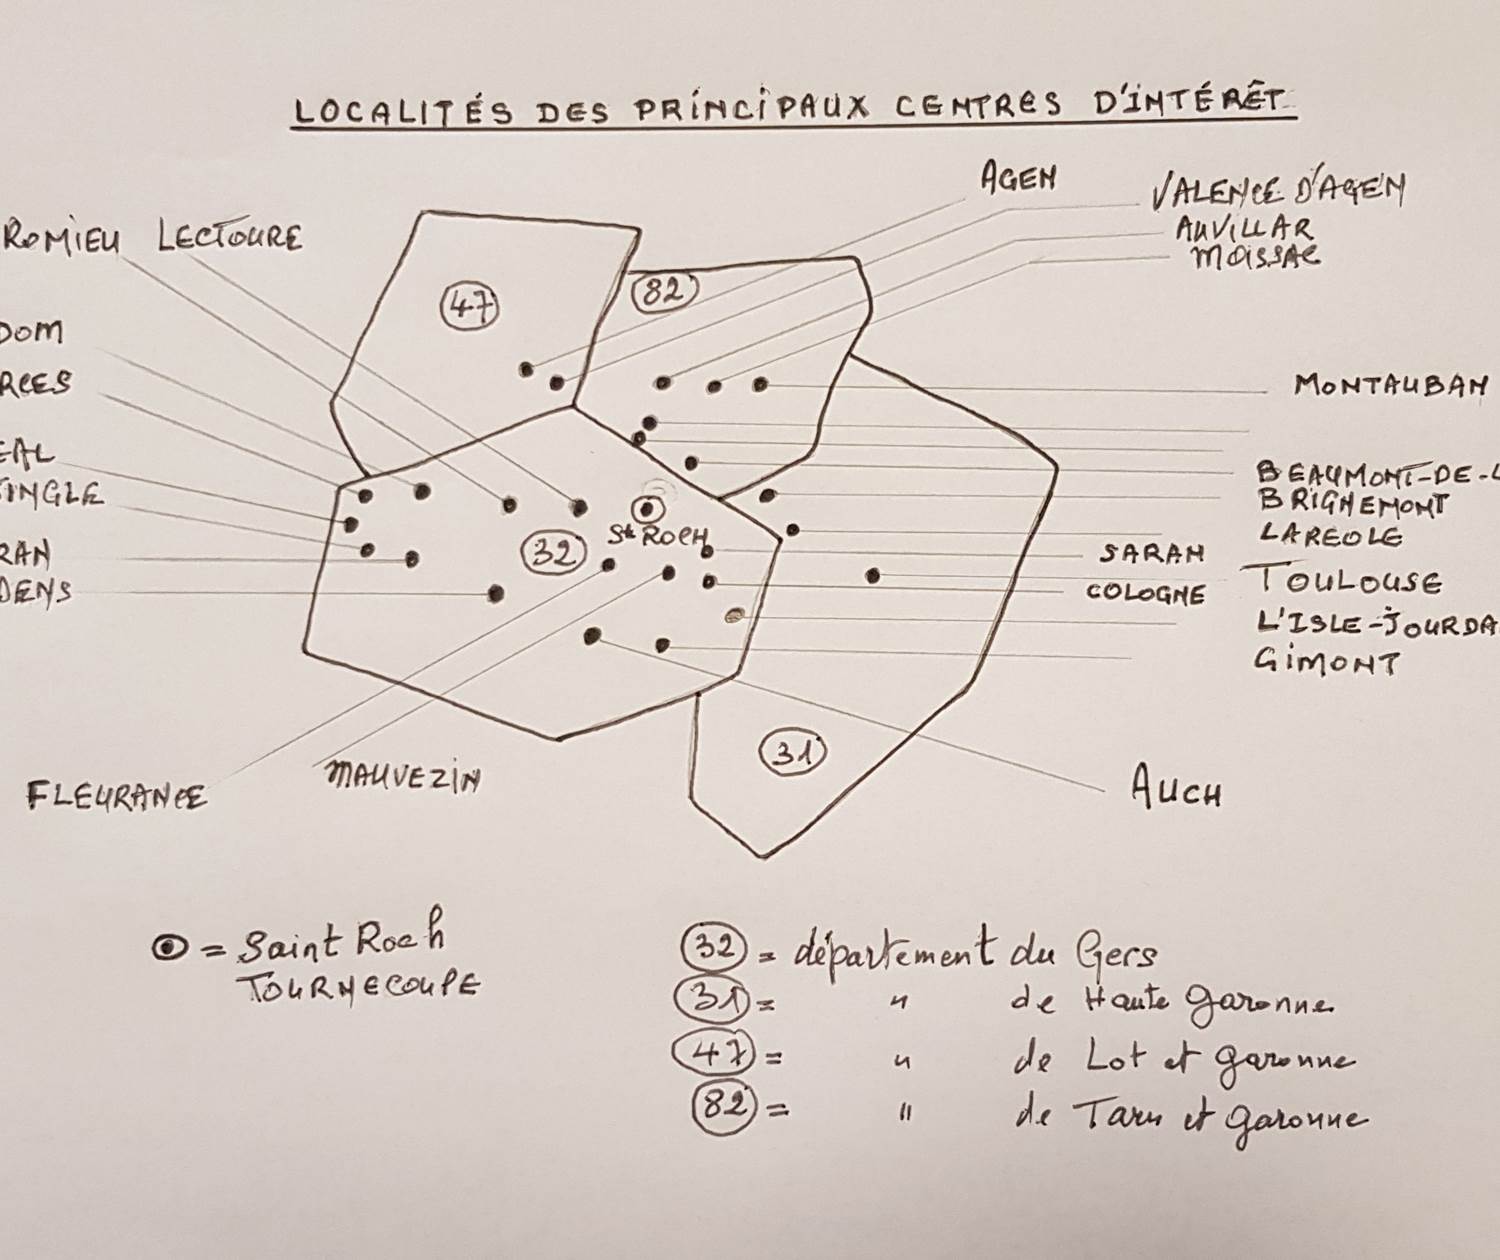 LOCALITÉS DES PRINCIPAUX CENTRES D'INTÉRÊT
AGEN
VALENCE D'AGEN
AUVILLAR
MOISSAC
ROMIEU LECTOURE
47
82
DOM
RCES
MONTAUBAN
EAL
INGLE
BEAUMONT-DE-L
BRIGNEMONT
LAREOLE
St ROCH
32
SARAN
RAN
TOULOUSE
COLOGNE
DENS
L'ISLE-JOURDA
GIMONT
31
MAUVEZIN
FLEURANCE
AUCH
= Saint Roch
TOURNECOUPE
32 = département du Gers
31 = " de Haute garonne
47 = " de Lot et garonne
82 = " de Tarn et garonne